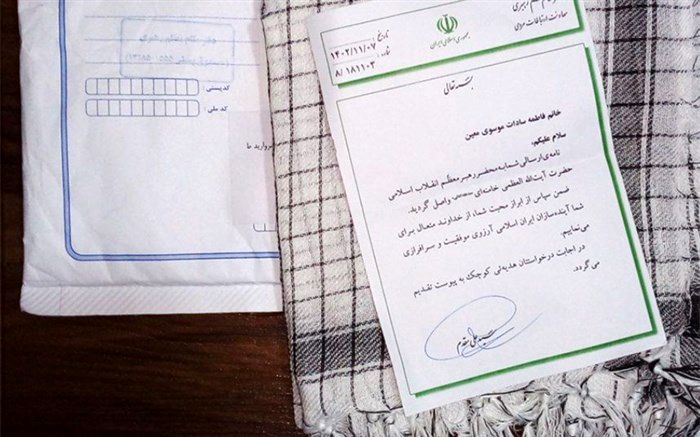 معاونت ارتباطات مردمی
جمهوری اسلامی ایران
تاریخ: ۱۴۰۲/۱۱/۰۷
۸/۱۸۱۱۰۳
بسمه تعالی
خانم فاطمه سادات موسوی معین
سلام علیکم،
نامه‌ی ارسالی شما به محضر رهبر معظّم انقلاب اسلامی
حضرت آیت‌الله العظمی خامنه‌ای واصل گردید.
ضمن سپاس از ابراز محبت شما، از خداوند متعال برای
شما آینده‌سازان ایران اسلامی آرزوی موفقیت و سرافرازی
می‌نماییم.
در اجابت درخواستتان هدیه‌ئی کوچک به پیوست تقدیم
می گردد.
کدپستی:
کد ملی: